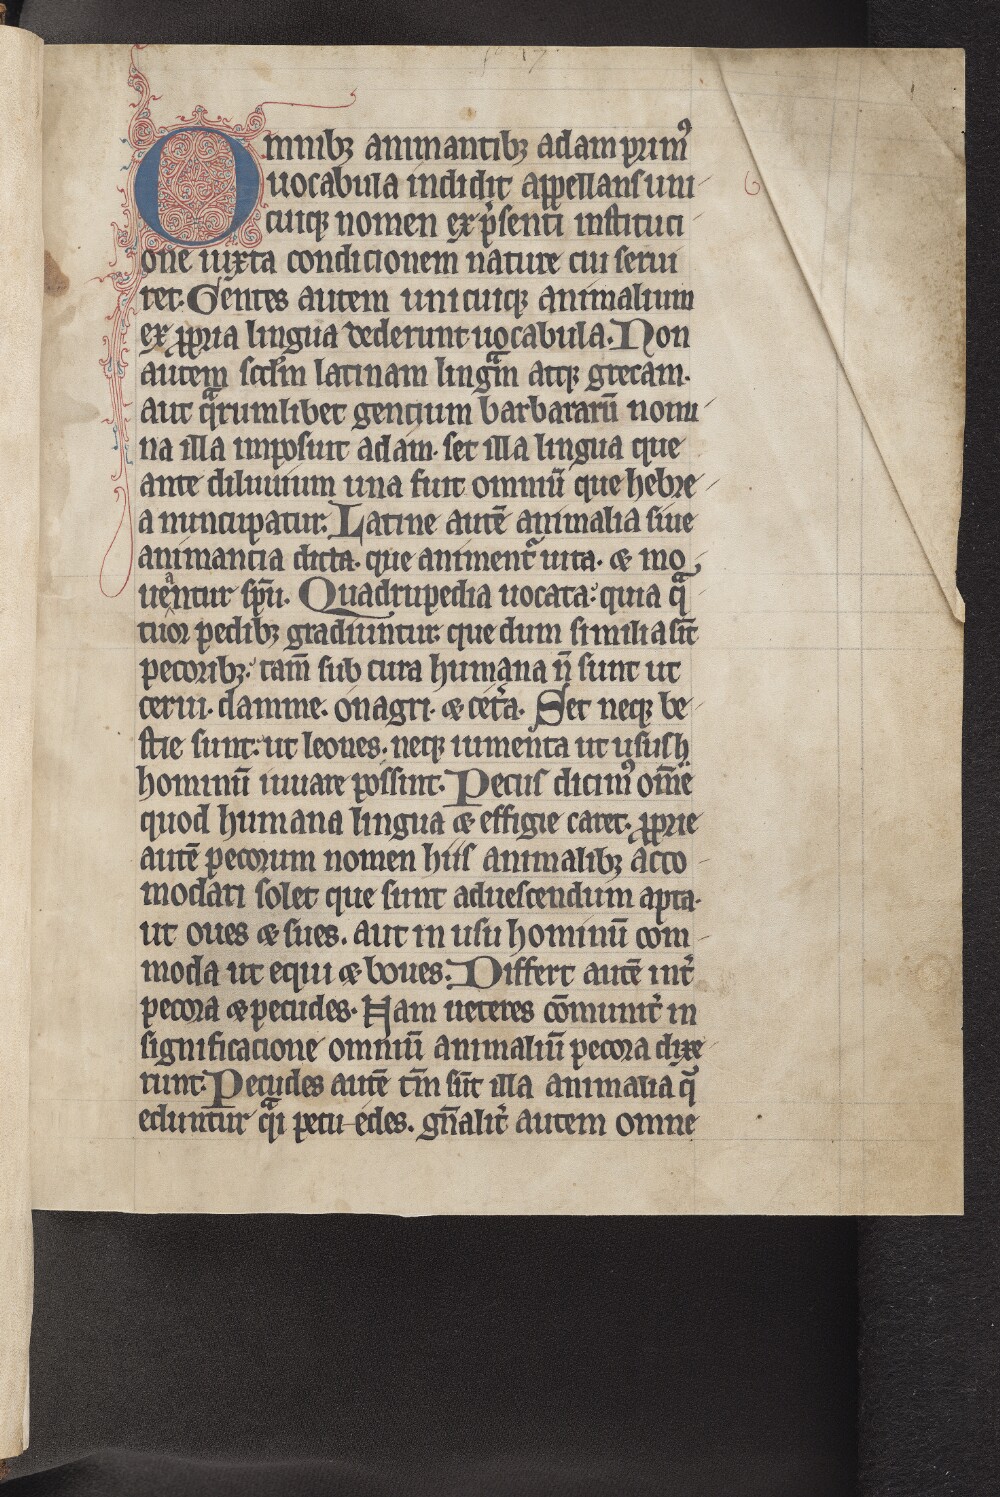 Omnibꝫ animantibꝫ adam prim᷒
uocabula indidit appellans uni
cuiqꝫ nomen ex p̄senti instituci
one iuxta condicionem nature cui serui
ret. Gentes autem unicuiqꝫ animalium
ex ꝓpria lingua dederunt uocabula. Non
autem scd̄m latinam lingᷓm atqꝫ grecam.
aut qᷓrumlibet gentium barbararū nomi
na illa imposuit adam. set illa lingua que
ante diluuium una fuit omniū que hebre
a nuncupatur. Latine autē animalia siue
animancia dicta. que animent᷑ uita. ⁊ mo
ueantur sp̄u. Quadrupedia uocata: quia qᷓ
tuor pedibꝫ gradiuntur. que dum similia sīt
pecoribꝫ: tam̄ sub cura humana n̄ sunt ut
cerui. damme. onagri. ⁊ cet̉a. Set neqꝫ be
stie sunt: ut leones. neqꝫ iumenta ut usus h
hominū iuuare possint. Pecus dicim᷒ om̄e
quod humana lingua ⁊ effigie caret. ꝓprie
autē pecorum nomen hiis animalibꝫ acco
modari solet que sunt aduescendum apta.
ut oues ⁊ sues. aut in usu hominū com
moda ut equi ⁊ boues. Differt autē int̉
pecora ⁊ pecudes. Nam ueteres cōmunit̉ in
significacione omniū animaliū pecora dixe
runt. Pecudes autē tm̄ sūt illa animalia q̄
eduntur qᷓi pecu edes. gn̄alit̉ autem omne